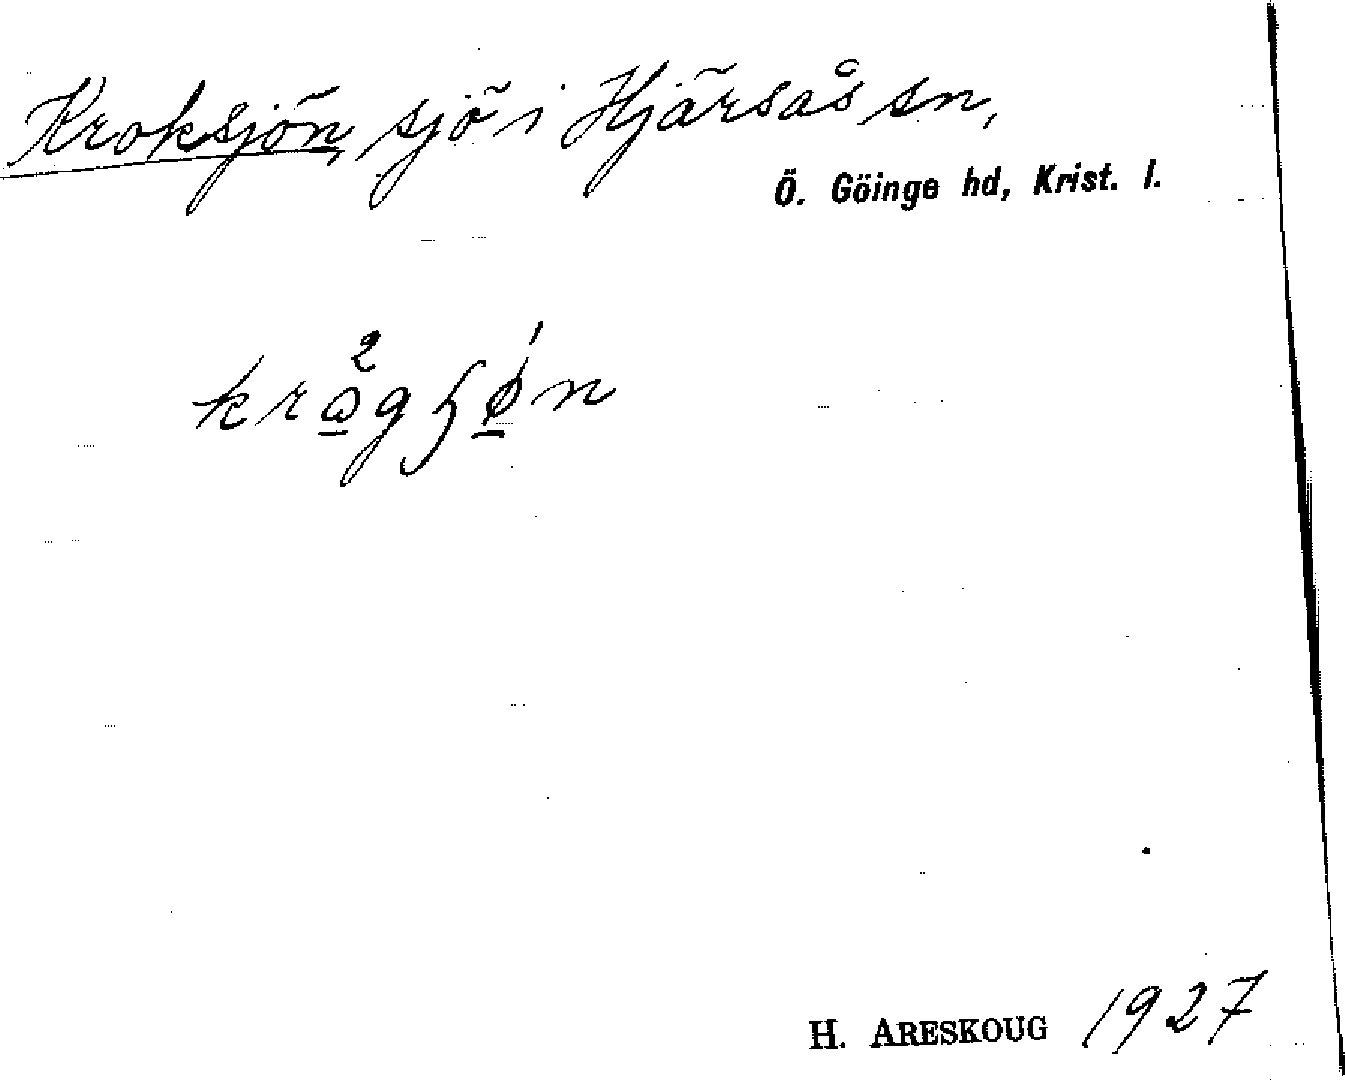 Kroksjön, sjö i Hjärsås sn,
Ö. Göinge hd, Krist. l.
H. ARESKOUG 1927